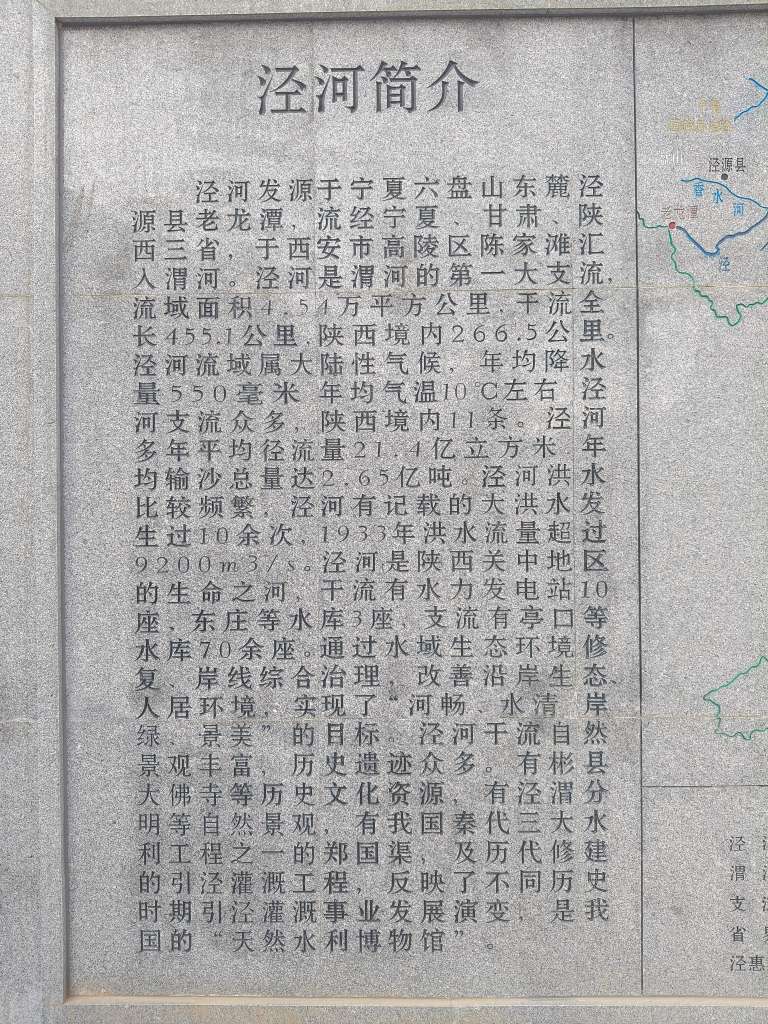 泾河简介
泾河发源于宁夏六盘山东麓泾
源县老龙潭，流经宁夏、甘肃、陕
西三省，于西安市高陵区陈家滩汇
入渭河。泾河是渭河的第一大支流，
流域面积4.54万平方公里，干流全
长455.1公里，陕西境内266.5公里。
泾河流域属大陆性气候，年均降水
量550毫米 年均气温10℃左右 泾
河支流众多，陕西境内11条。泾河
多年平均径流量21.4亿立方米 年
均输沙总量达2.65亿吨。泾河洪水
比较频繁，泾河有记载的大洪水发
生过10余次，1933年洪水流量超过
9200m3/s。泾河是陕西关中地区
的生命之河，干流有水力发电站10
座，东庄等水库3座，支流有亭口等
水库70余座。通过水域生态环境修
复、岸线综合治理，改善沿岸生态、
人居环境，实现了“河畅、水清 岸
绿、景美”的目标。泾河干流自然
景观丰富，历史遗迹众多。有彬县
大佛寺等历史文化资源，有泾渭分
明等自然景观，有我国秦代三大水
利工程之一的郑国渠，及历代修建
的引泾灌溉工程，反映了不同历史
时期引泾灌溉事业发展演变，是我
国的“天然水利博物馆”。
泾源县
香水河
老龙潭
泾
泾
渭
支
省
泾惠